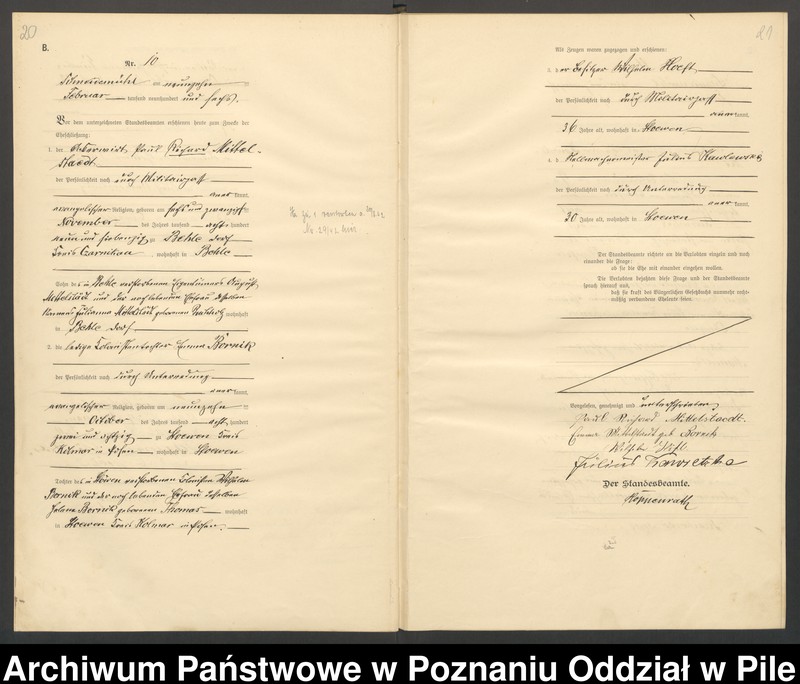 20
B.
Nr. 10
Schneidemühl am neunzehn
Februar tausend neunhundert und sechs.
Vor dem unterzeichneten Standesbeamten erschienen heute zum Zweck der
Eheschließung:
1. der Ackerwirt Paul Richard Mittel-
staedt
der Persönlichkeit nach durch Militairpaß
aner kannt,
evangelischer Religion, geboren am sechs und zwanzigsten
November des Jahres tausend acht hundert
neun und siebenzig zu Behle Dorf
Kreis Czarnikau, wohnhaft in Behle
Sohn des in Behle verstorbenen Eigentümers August
Mittelstädt und der noch lebenden Ehefrau desselben
Julianna Mittelstädt geborenen wohnhaft
in Behle Dorf
2. die ledige Emma Bornik
der Persönlichkeit nach durch Unterredung
aner kannt,
evangelischer Religion, geboren am neunzehn
October des Jahres tausend acht hundert
zwei und achtzig zu Stoewen Kreis
Kolmar in Posen, wohnhaft in Stoewen
Tochter des in Stöwen verstorbenen Wilhelm
Bornik und der noch lebenden Ehefrau desselben
Bornik geborenen Thomas wohnhaft
in Stoewen Kreis Kolmar in Posen.
21
Als Zeugen waren zugezogen und erschienen:
3. der Besitzer Wilhelm Hoeft
der Persönlichkeit nach durch Militairpaß
aner kannt,
36 Jahre alt, wohnhaft in Stoewen
4. der Stellmachermeister Julius
der Persönlichkeit nach durch Unterredung
aner kannt,
30 Jahre alt, wohnhaft in Stoewen
Der Standesbeamte richtete an die Verlobten einzeln und nach
einander die Frage:
ob sie die Ehe mit einander eingehen wollen.
Die Verlobten bejahten diese Frage und der Standesbeamte
sprach hierauf aus,
daß sie kraft des Bürgerlichen Gesetzbuchs nunmehr recht-
mäßig verbundene Eheleute seien.
Vorgelesen, genehmigt und unterschrieben
Paul Richard Mittelstaedt.
Emma Mittelstädt geb Bornik
Wilhelm Hoeft
Julius
Der Standesbeamte.
Archiwum Państwowe w Poznaniu Oddział w Pile